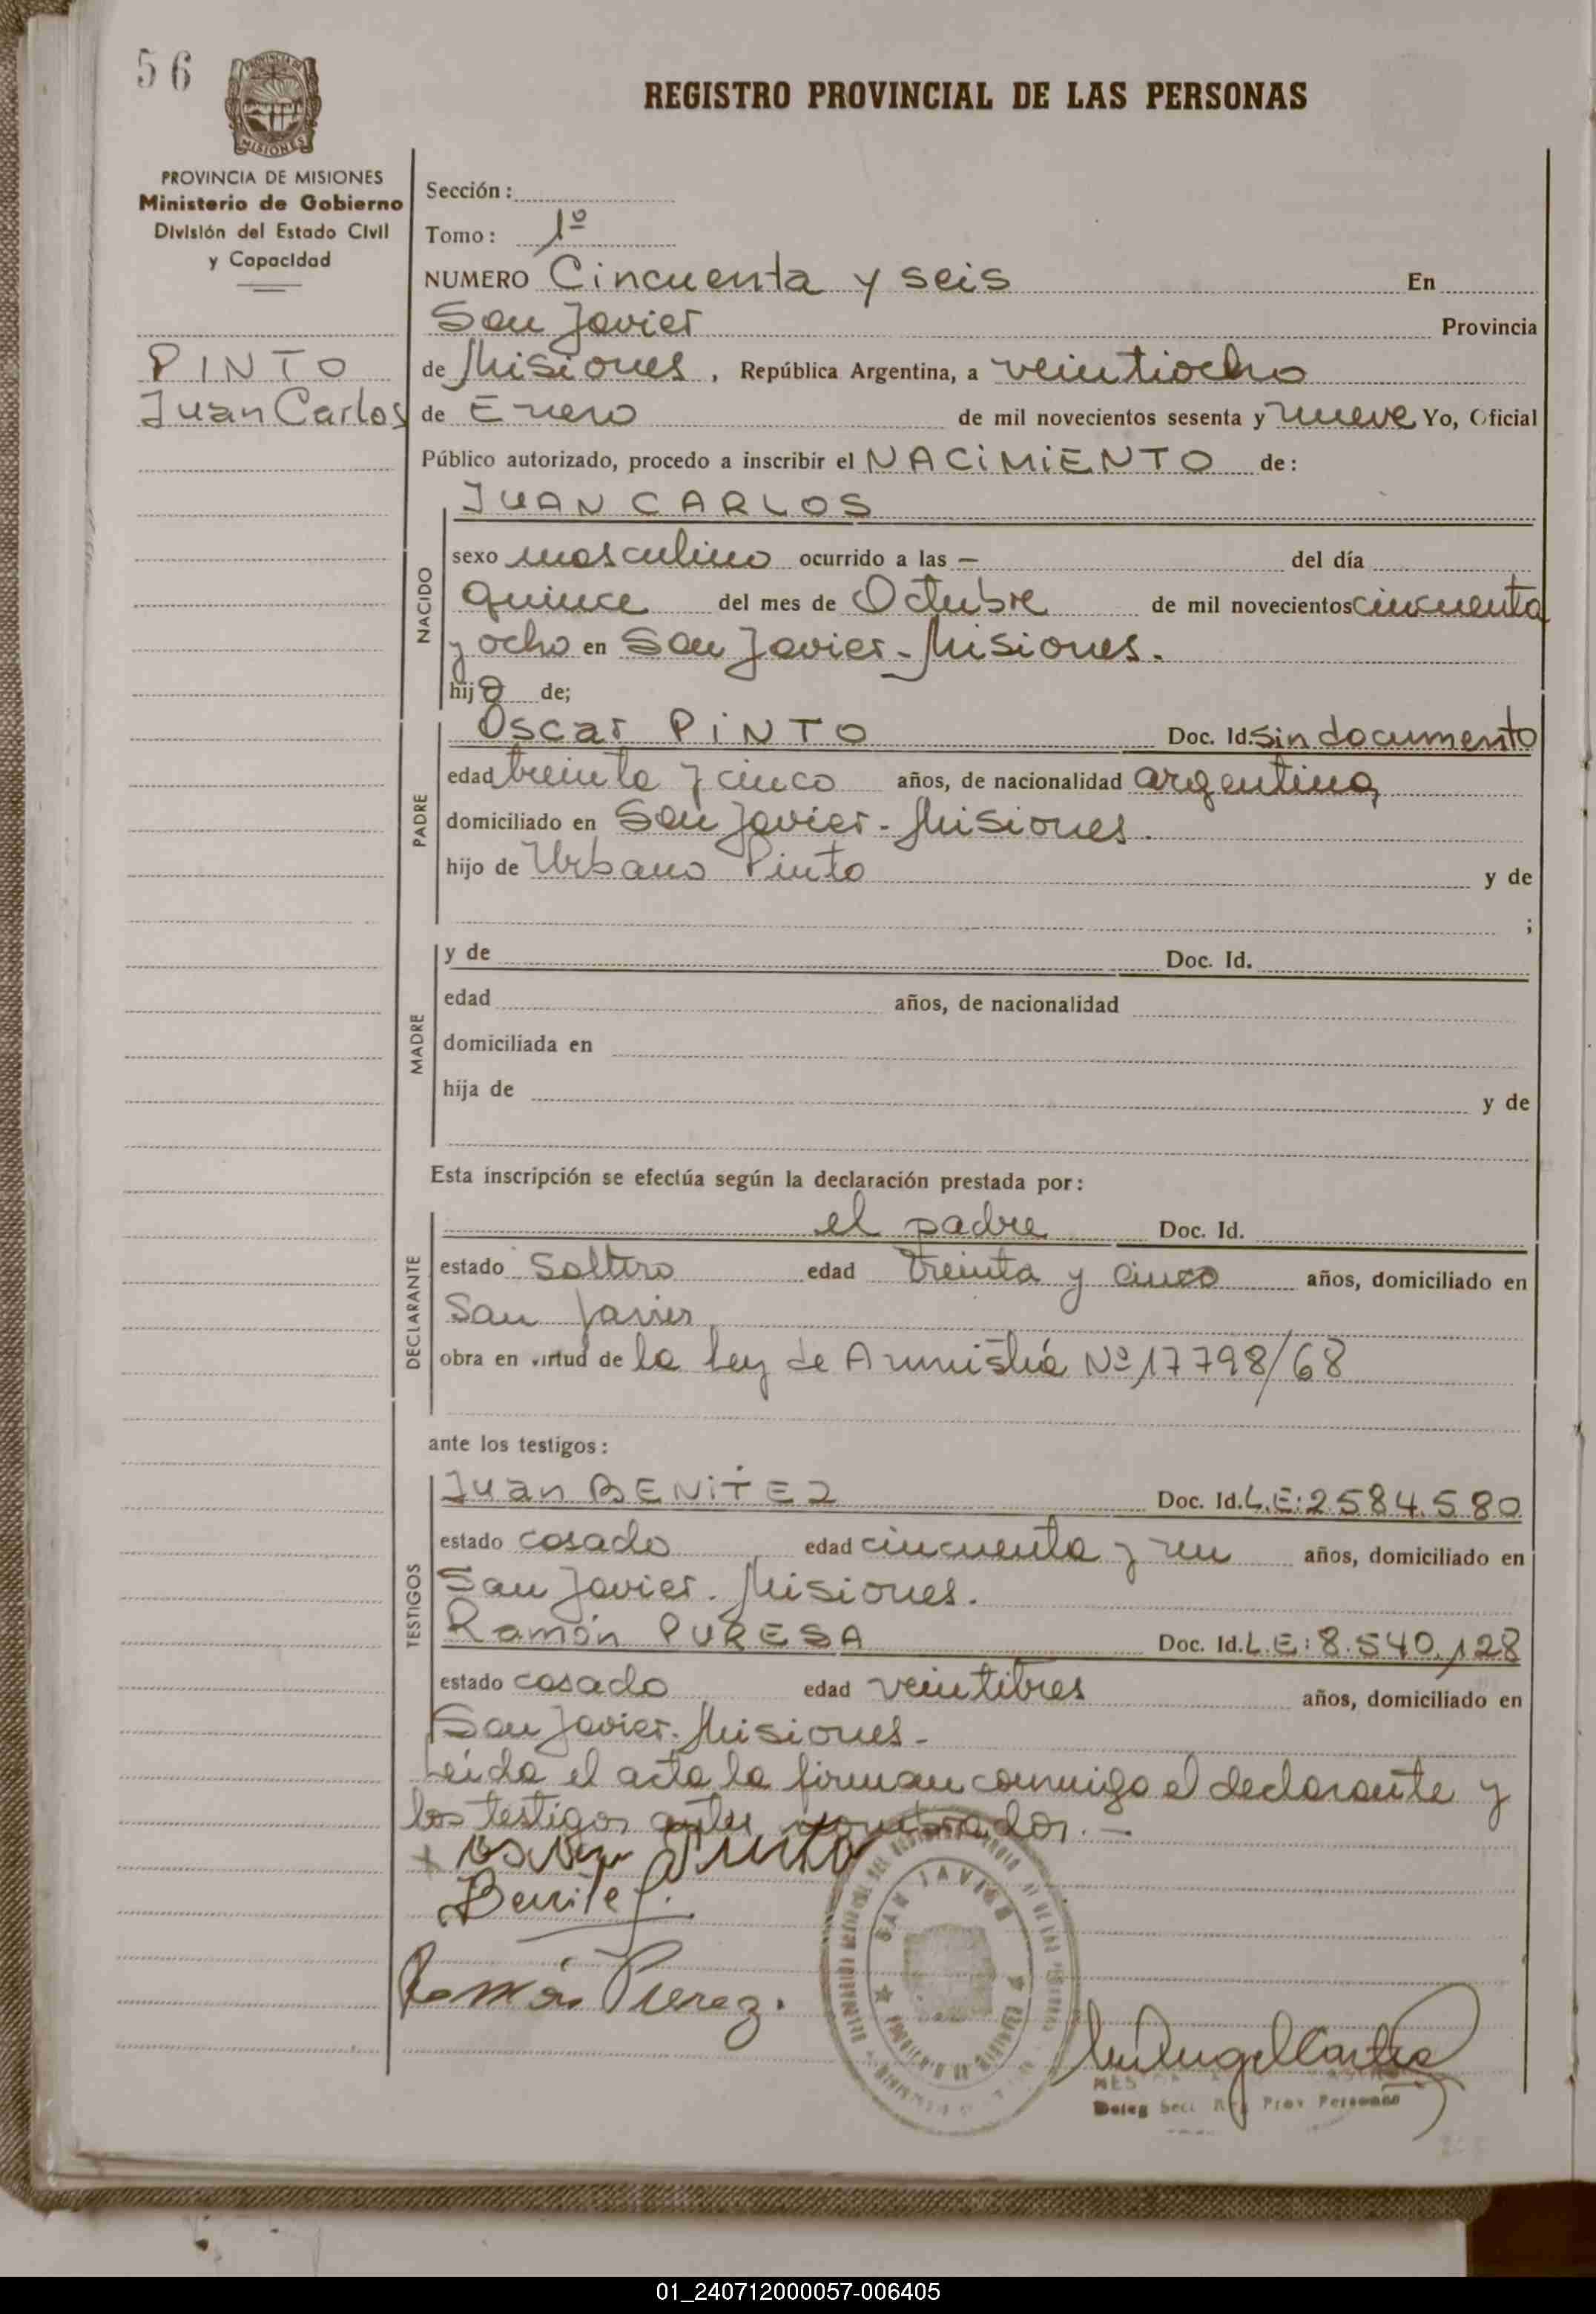 56
MISIONES
REGISTRO PROVINCIAL DE LAS PERSONAS
PROVINCIA DE MISIONES
Ministerio de Gobierno
División del Estado Civil
y Capacidad
PINTO
Juan Carlos
Sección:
Tomo: 1º
NUMERO Cincuenta y seis En
San Javier Provincia
de Misiones, República Argentina, a veintiocho
de Enero de mil novecientos sesenta y nueve Yo, Oficial
Público autorizado, procedo a inscribir el NACIMIENTO de:
NACIDO
JUAN CARLOS
sexo masculino ocurrido a las — del día
quince del mes de Octubre de mil novecientos cincuenta
y ocho en San Javier - Misiones.
hijo de;
PADRE
Oscar PINTO Doc. Id. Sin documento
edad treinta y cinco años, de nacionalidad argentina,
domiciliado en San Javier - Misiones.
hijo de Urbano Pinto y de
;
MADRE
y de Doc. Id.
edad años, de nacionalidad
domiciliada en
hija de y de
Esta inscripción se efectúa según la declaración prestada por:
DECLARANTE
el padre Doc. Id.
estado Soltero edad treinta y cinco años, domiciliado en
San Javier
obra en virtud de la ley de Amnistía Nº 17798/68
ante los testigos:
TESTIGOS
Juan BENITEZ Doc. Id. L.E: 2.584.580
estado casado edad cincuenta y un años, domiciliado en
San Javier. Misiones.
Ramón PURESA Doc. Id. L.E: 8.540.128
estado casado edad veintitres años, domiciliado en
San Javier. Misiones -
Leída el acta la firman conmigo el declarante y
los testigos antes nombrados. —
+ Oscar Pinto
Benitez.
SAN JAVIER
Deleg Secc Reg Prov Personas
01_240712000057-006405